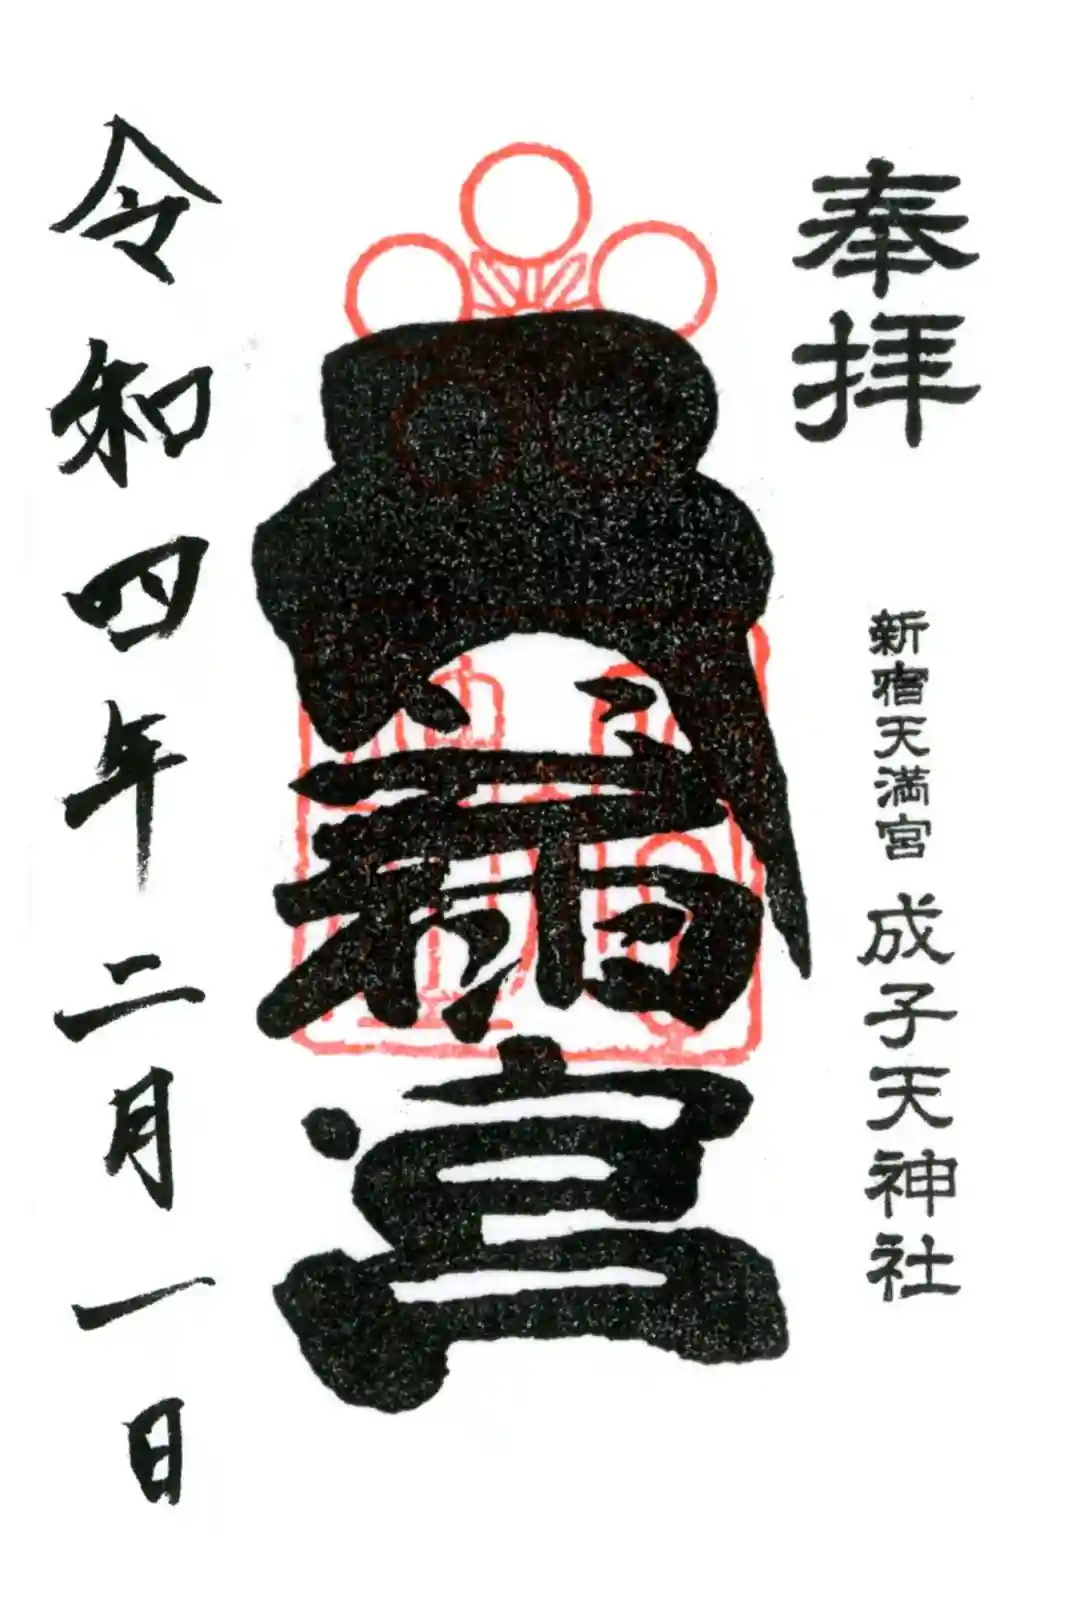 奉拝
新宿天満宮 成子天神社
令和四年二月一日